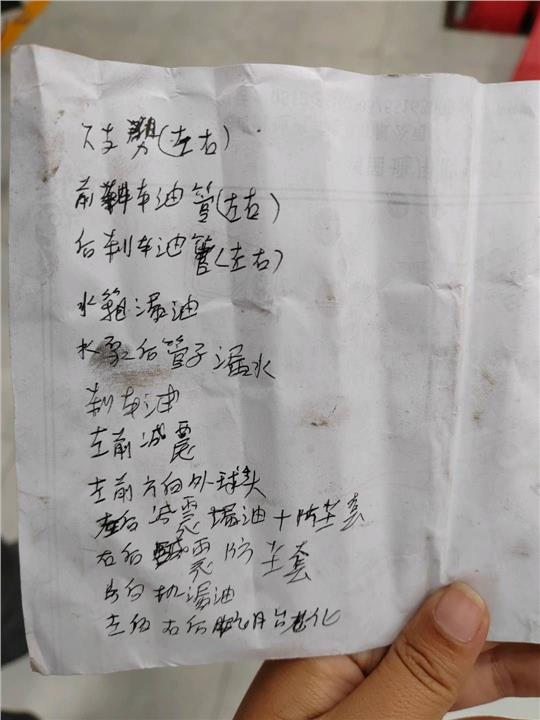 下支臂(左右)
前刹车油管(左右)
后刹车油管(左右)
水箱漏油
水泵后管子漏水
刹车油
左前减震
左前方向外球头
左后减震漏油+防尘套
右后减震防尘套
方向机漏油
左后右后轮胎老化